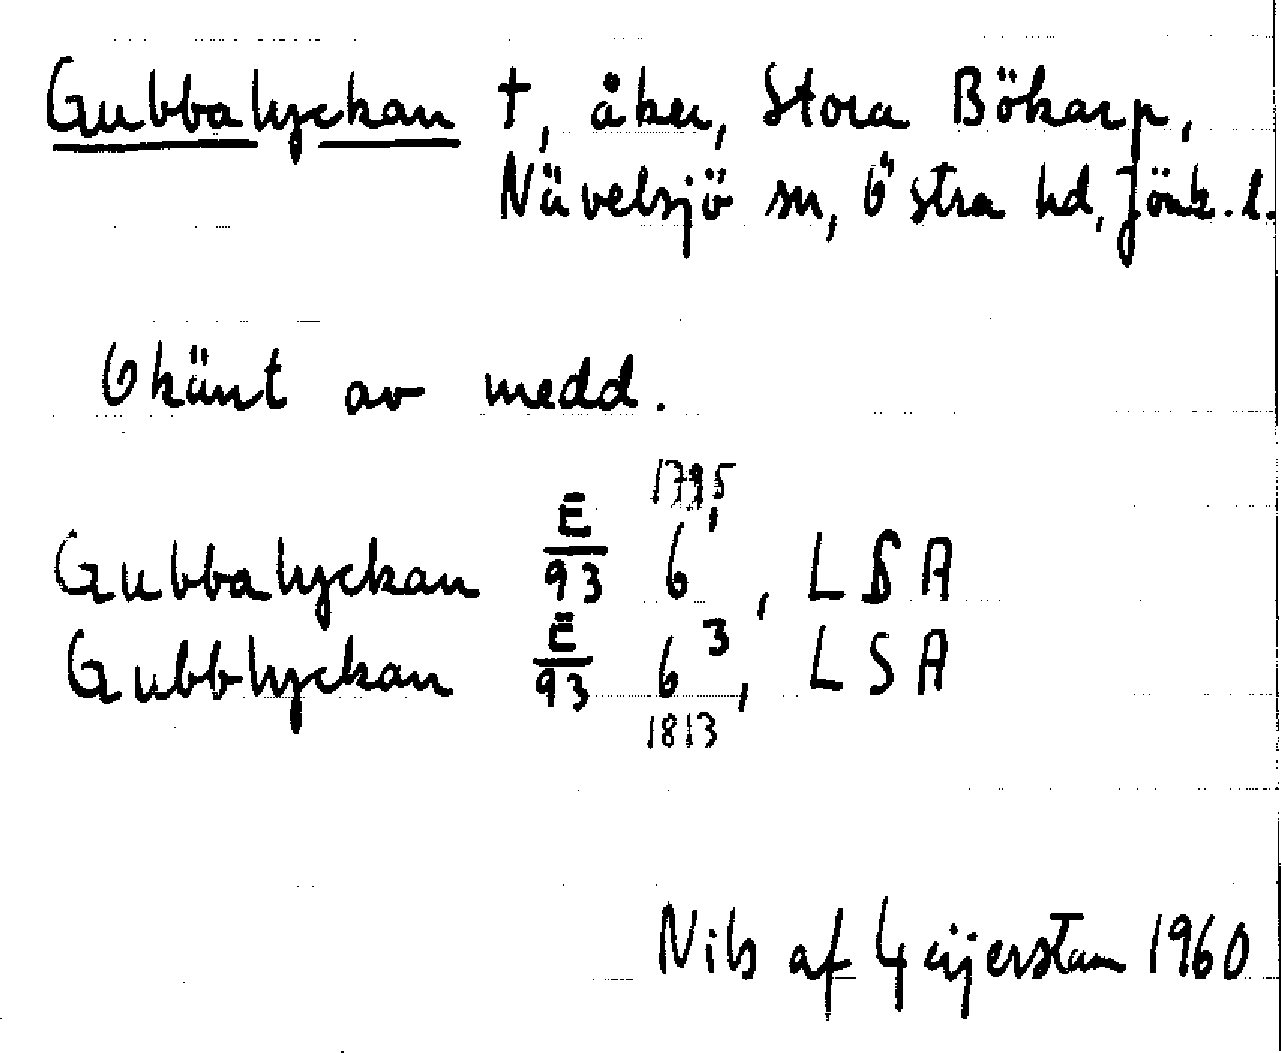 Gubbalyckan †, åker, Stora Bökarp,
Nävelsjö sn, Östra hd, Jönk. l.
Okänt av medd.
1795
Gubbalyckan E/93 6, LSA
Gubblyckan E/93 6 3, LSA
1813
Nils af Geijerstam 1960